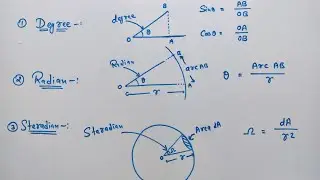 ① Degree -:
degree
B
θ
O
A
Sinθ = AB/OB
Cosθ = OA/OB
② Radian -:
Radian
B
arc AB
θ
O
A
r
θ = Arc AB/r
③ Steradian -:
Steradian
Area dA
O
dΩ
r
Ω = dA/r2